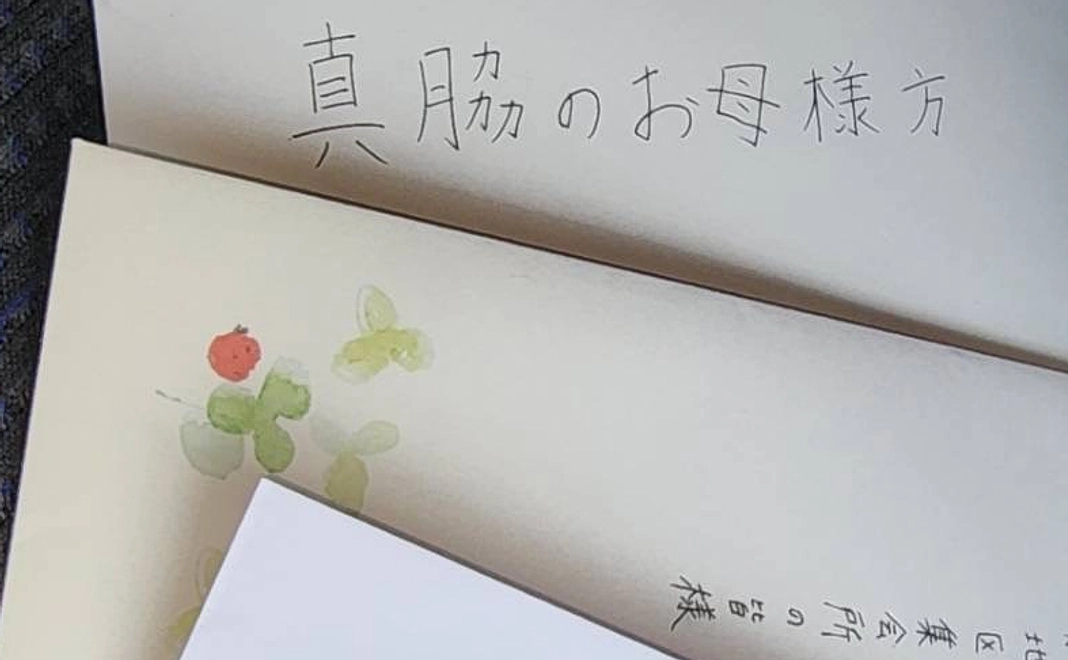 真脇のお母様方
地区集会所の皆様